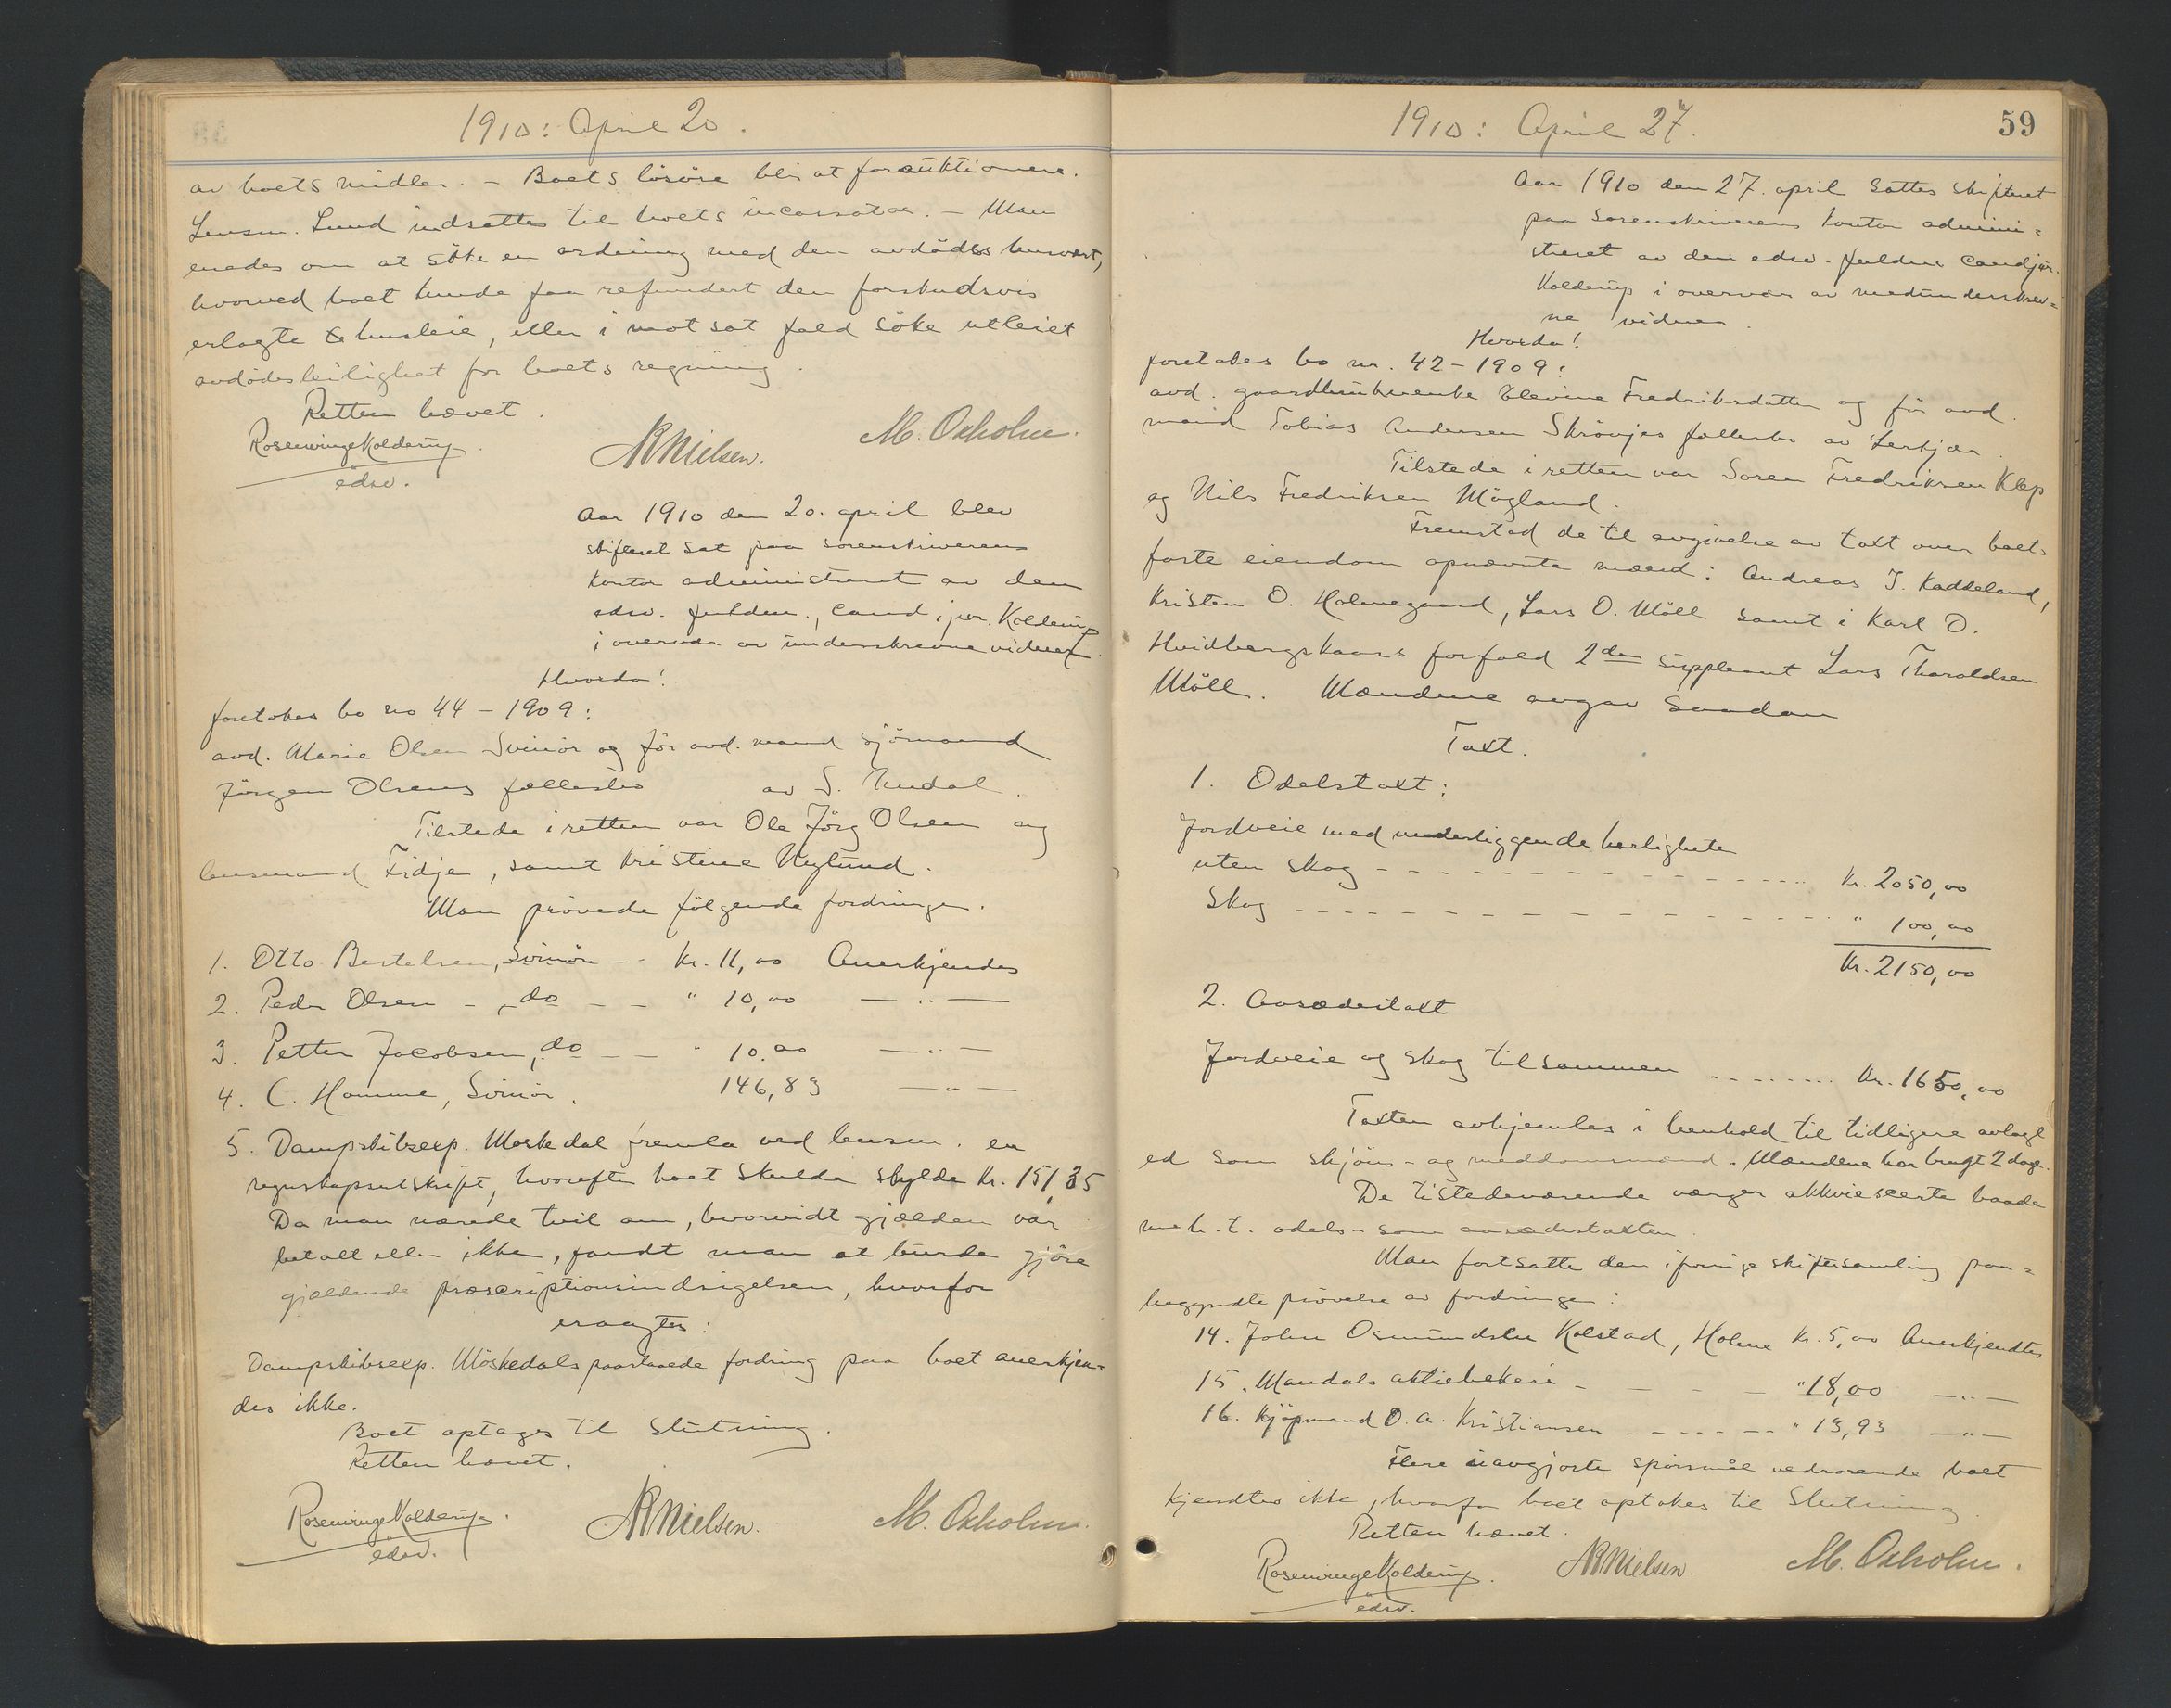 1910: April 20.
av boets midler. – Boets lösöre blir at forauktionere.
Lensm. Lund indsattes til boets incassator. – Man
enedes om at söke en ordning med den avdödes husvært,
hvorved boet kunde faa refundert den forskudsvis
erlagte husleie, eller i motsat fald söke utleiet
avdödes leilighet for boets regning.
Retten hævet.
Rosenvinge Kolderup
edsv.
NRNielsen.
M. Oxholm.
Aar 1910 den 20. april blev
skifteret sat paa sorenskriverens
kontor administreret av den
edsv. fuldm., cand. jur. Kolderup
i overvær av underskrevne vidner.
Hvorda!
foretokes bo no 44 – 1909:
avd. Marie Olsen Svinör og för avd. mand sjömand
Jörgen Olsens fællesbo av S. Audal.
Tilstede i retten var Ole Jörg Olsen og
lensmand Fidje, samt Kristine Nylund.
Man prövede fölgende fordringer.
1. Otto Bertelsen, Svinör – - Kr. 11,00 Anerkjendes
2. Peder Olsen – „ do – – " 10,00 — „ —
3. Petter Jacobsen, do – – " 10.00 — „ —
4. C. Homme, Svinör. 146,83 — „ —
5. Dampskibsexp. Moskedal fremla ved lensm. en
regnskapsutskrift, hvorefter boet skulde skylde Kr. 151,35
Da man nærede tvil om, hvorvidt gjælden var
betalt eller ikke, fandt man at burde gjöre
gjældende præscriptionsindsigelsen, hvorfor
eragtes:
Dampskibsexp. Möskedals paastaaede fordring paa boet anerkjen=
des ikke.
Boet optages til slutning.
Retten hævet.
Rosenvinge Kolderup.
edsv.
NRNielsen.
M. Oxholm.
1910: April 27.
59
Aar 1910 den 27. april sattes skifteret
paa sorenskriverens kontor admini=
streret av den edsv. fuldm. cand jur.
Kolderup i overvær av medunderskrev=
ne vidner.
Hvorda!
foretokes bo nr. 42 – 1909:
avd. gaardbrukerenke Elevine Fredriksdatter og för avd.
mand Tobias Andersen Skrövjes fællesbo av Lerkjær.
Tilstede i retten var Soren Fredriksen Klep
og Nils Fredriksen Mögland.
Fremstod de til avgivelse av takt over boets
faste eiendom opnævnte mænd: Andreas J. Kaddeland,
Kristen O. Holmegaard, Lars O. Möll samt i Karl O.
Hvidbergskaars forfald 2den suppleant Lars Tharaldsen
Möll. Mændene avgav saadan
Taxt.
1. Odelstaxt:
Jordveie med underliggende herligheter
uten skog – – – – – – – – Kr. 2050,00
Skog – – – – – – – – – – " 100,00
Kr. 2150,00
2. Aasædestaxt
Jordveie og skog tilsammen . . . . . . . Kr. 1650,00
Taxten avhjemles i henhold til tidligere avlagt
ed som skjöns- og meddomsmænd. Mændene har brugt 2 dage.
De tilstedeværende værger akkviescerte baade
m.h.t. odels- som aasædestaxten.
Man fortsatte den i forrige skiftesamling paa=
begyndte prövelse av fordringer:
14. John Osmundsen Kolstad, Holme Kr. 5,00 Anerkjendtes
15. Mandals aktiebokeri – – – – " 18,00 — „ —
16. Kjöpmand O. A. Kristiansen – – – – – " 13,93 — „ —
Flere uavgjorte spörsmål vedrorende boet
kjendtes ikke, hvorfor boet optokes til slutning
Retten hævet.
Rosenvinge Kolderup.
edsv.
NRNielsen.
M. Oxholm.